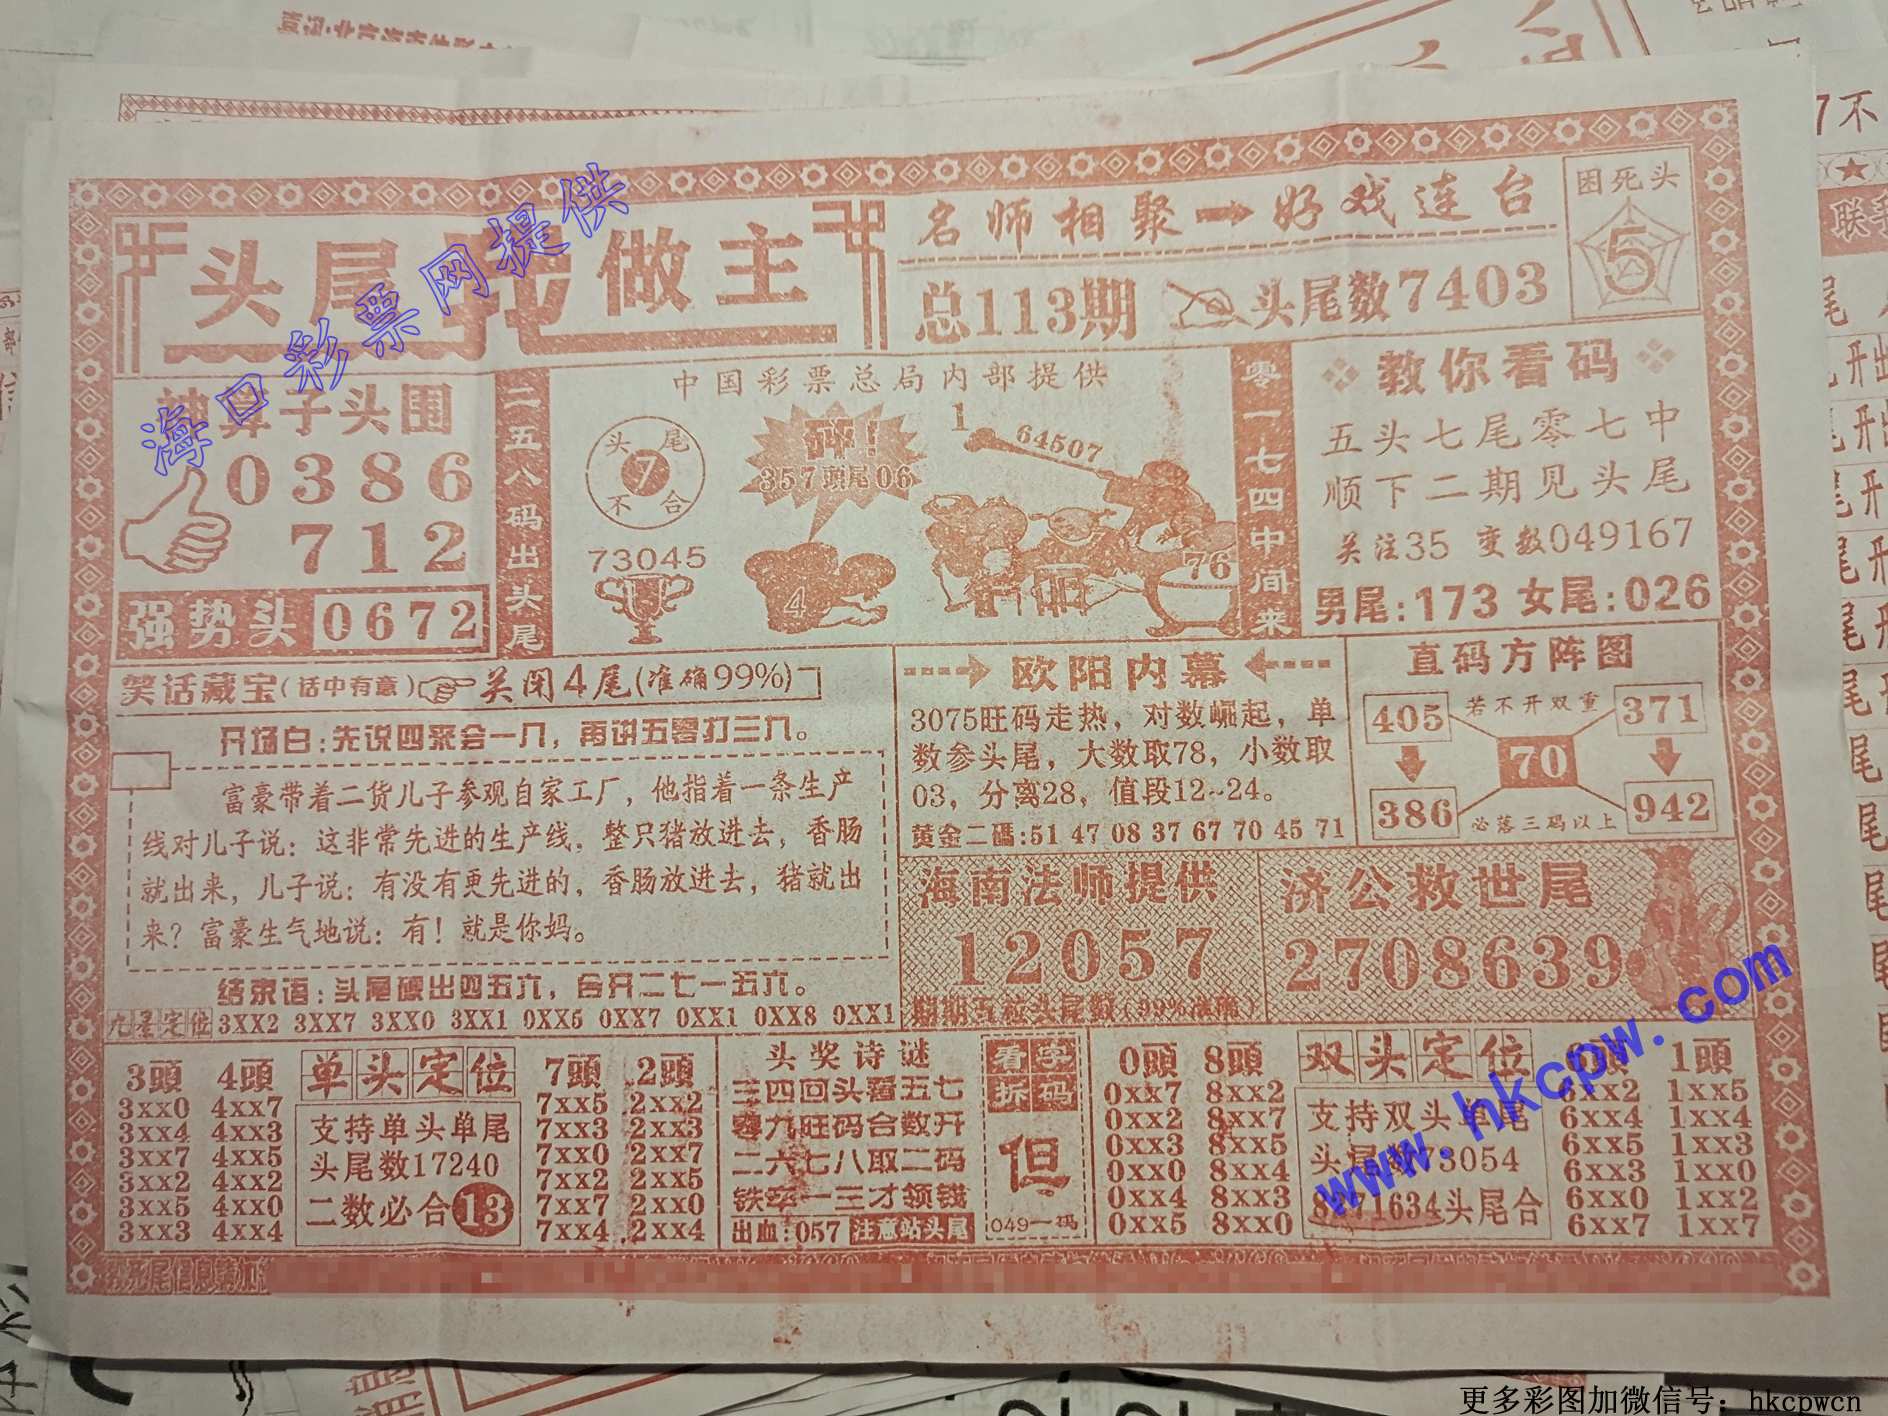 头尾我做主
名师相聚 好戏连台
总113期 头尾数7403
困死头
5
神算子头围
0386
712
强势头 0672
二五八码出头尾
中国彩票总局内部提供
头尾
7
不合
73045
碎!
357頭尾06
4
1
64507
76
零一七四中间来
教你看码
五头七尾零七中
顺下二期见头尾
关注35 变数049167
男尾:173 女尾:026
笑话藏宝(话中有意) 关闭4尾(准确99%)
开场白:先说四来会一八,再讲五零打三九。
富豪带着二货儿子参观自家工厂,他指着一条生产
线对儿子说:这非常先进的生产线,整只猪放进去,香肠
就出来,儿子说:有没有更先进的,香肠放进去,猪就出
来?富豪生气地说:有!就是你妈。
结束语:头尾硬出四五六,合开二七一五六。
九星定位 3XX2 3XX7 3XX0 3XX1 0XX5 0XX7 0XX1 0XX8 0XX1
欧阳内幕
3075旺码走热,对数崛起,单
数参头尾,大数取78,小数取
03,分离28,值段12~24。
黄金二碼:51 47 08 37 67 70 45 71
直码方阵图
405 若不开双重 371
70
386 必落三码以上 942
海南法师提供
12057
期期五粒头尾数(99%准确)
济公救世尾
2708639
3頭 4頭
3xx0 4xx7
3xx4 4xx3
3xx7 4xx5
3xx2 4xx2
3xx5 4xx0
3xx3 4xx4
单头定位
支持单头单尾
头尾数17240
二数必合13
7頭 2頭
7xx5 2xx2
7xx3 2xx3
7xx0 2xx7
7xx2 2xx5
7xx7 2xx0
7xx4 2xx4
头奖诗谜
三四回头看五七
零九旺码合数开
二六七八取二码
铁率一三才领钱
出血:057 注意站头尾
看字
拆码
但
049一码
0頭 8頭
0xx7 8xx2
0xx2 8xx7
0xx3 8xx5
0xx0 8xx4
0xx4 8xx3
0xx5 8xx0
双头定位
支持双头单尾
头尾数73054
8271634头尾合
6頭 1頭
6xx2 1xx5
6xx4 1xx4
6xx5 1xx3
6xx3 1xx0
6xx0 1xx2
6xx7 1xx7
海口彩票网提供
www.hkcpw.com
更多彩图加微信号:hkcpwcn